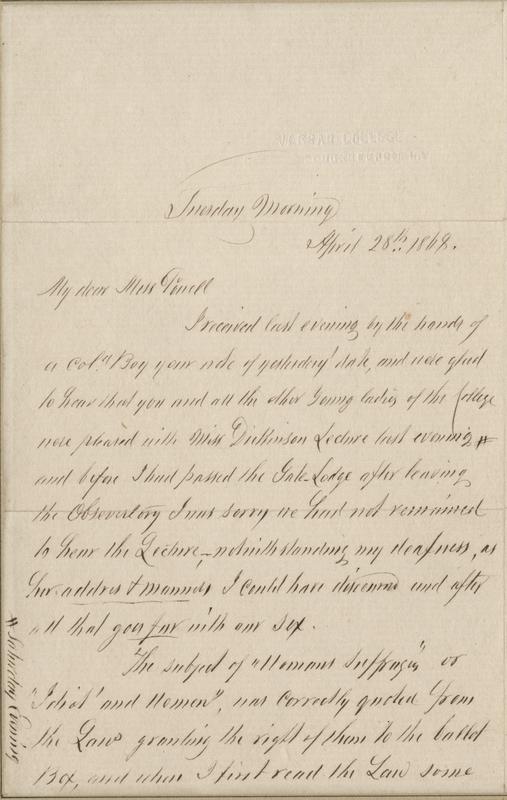 VASSAR COLLEGE
POUGHKEEPSIE. N.Y
Tuesday Morning
April 28th 1868.
My dear Miss Powell
I received last evening by the hands of
a Cold Boy your note of yesterdays date, and were glad
to hear that you and all the other Young ladies of the College
were pleased with Miss Dickinson Lecture last evening #
and before I had passed the Gate-Lodge after leaving
the Observertory I was sorry we had not remained
to hear the Lecture,- notwithstanding my deafness, as
her address & manners I could have discerned and after
all that goes far with our Sex.
"The subject of "Womans Suffrage" or
"Idiot' and Women", was correctly quoted from
the Laws granting the right of them to the ballot
Box, and when I first read the Law some
# Saturday Evening